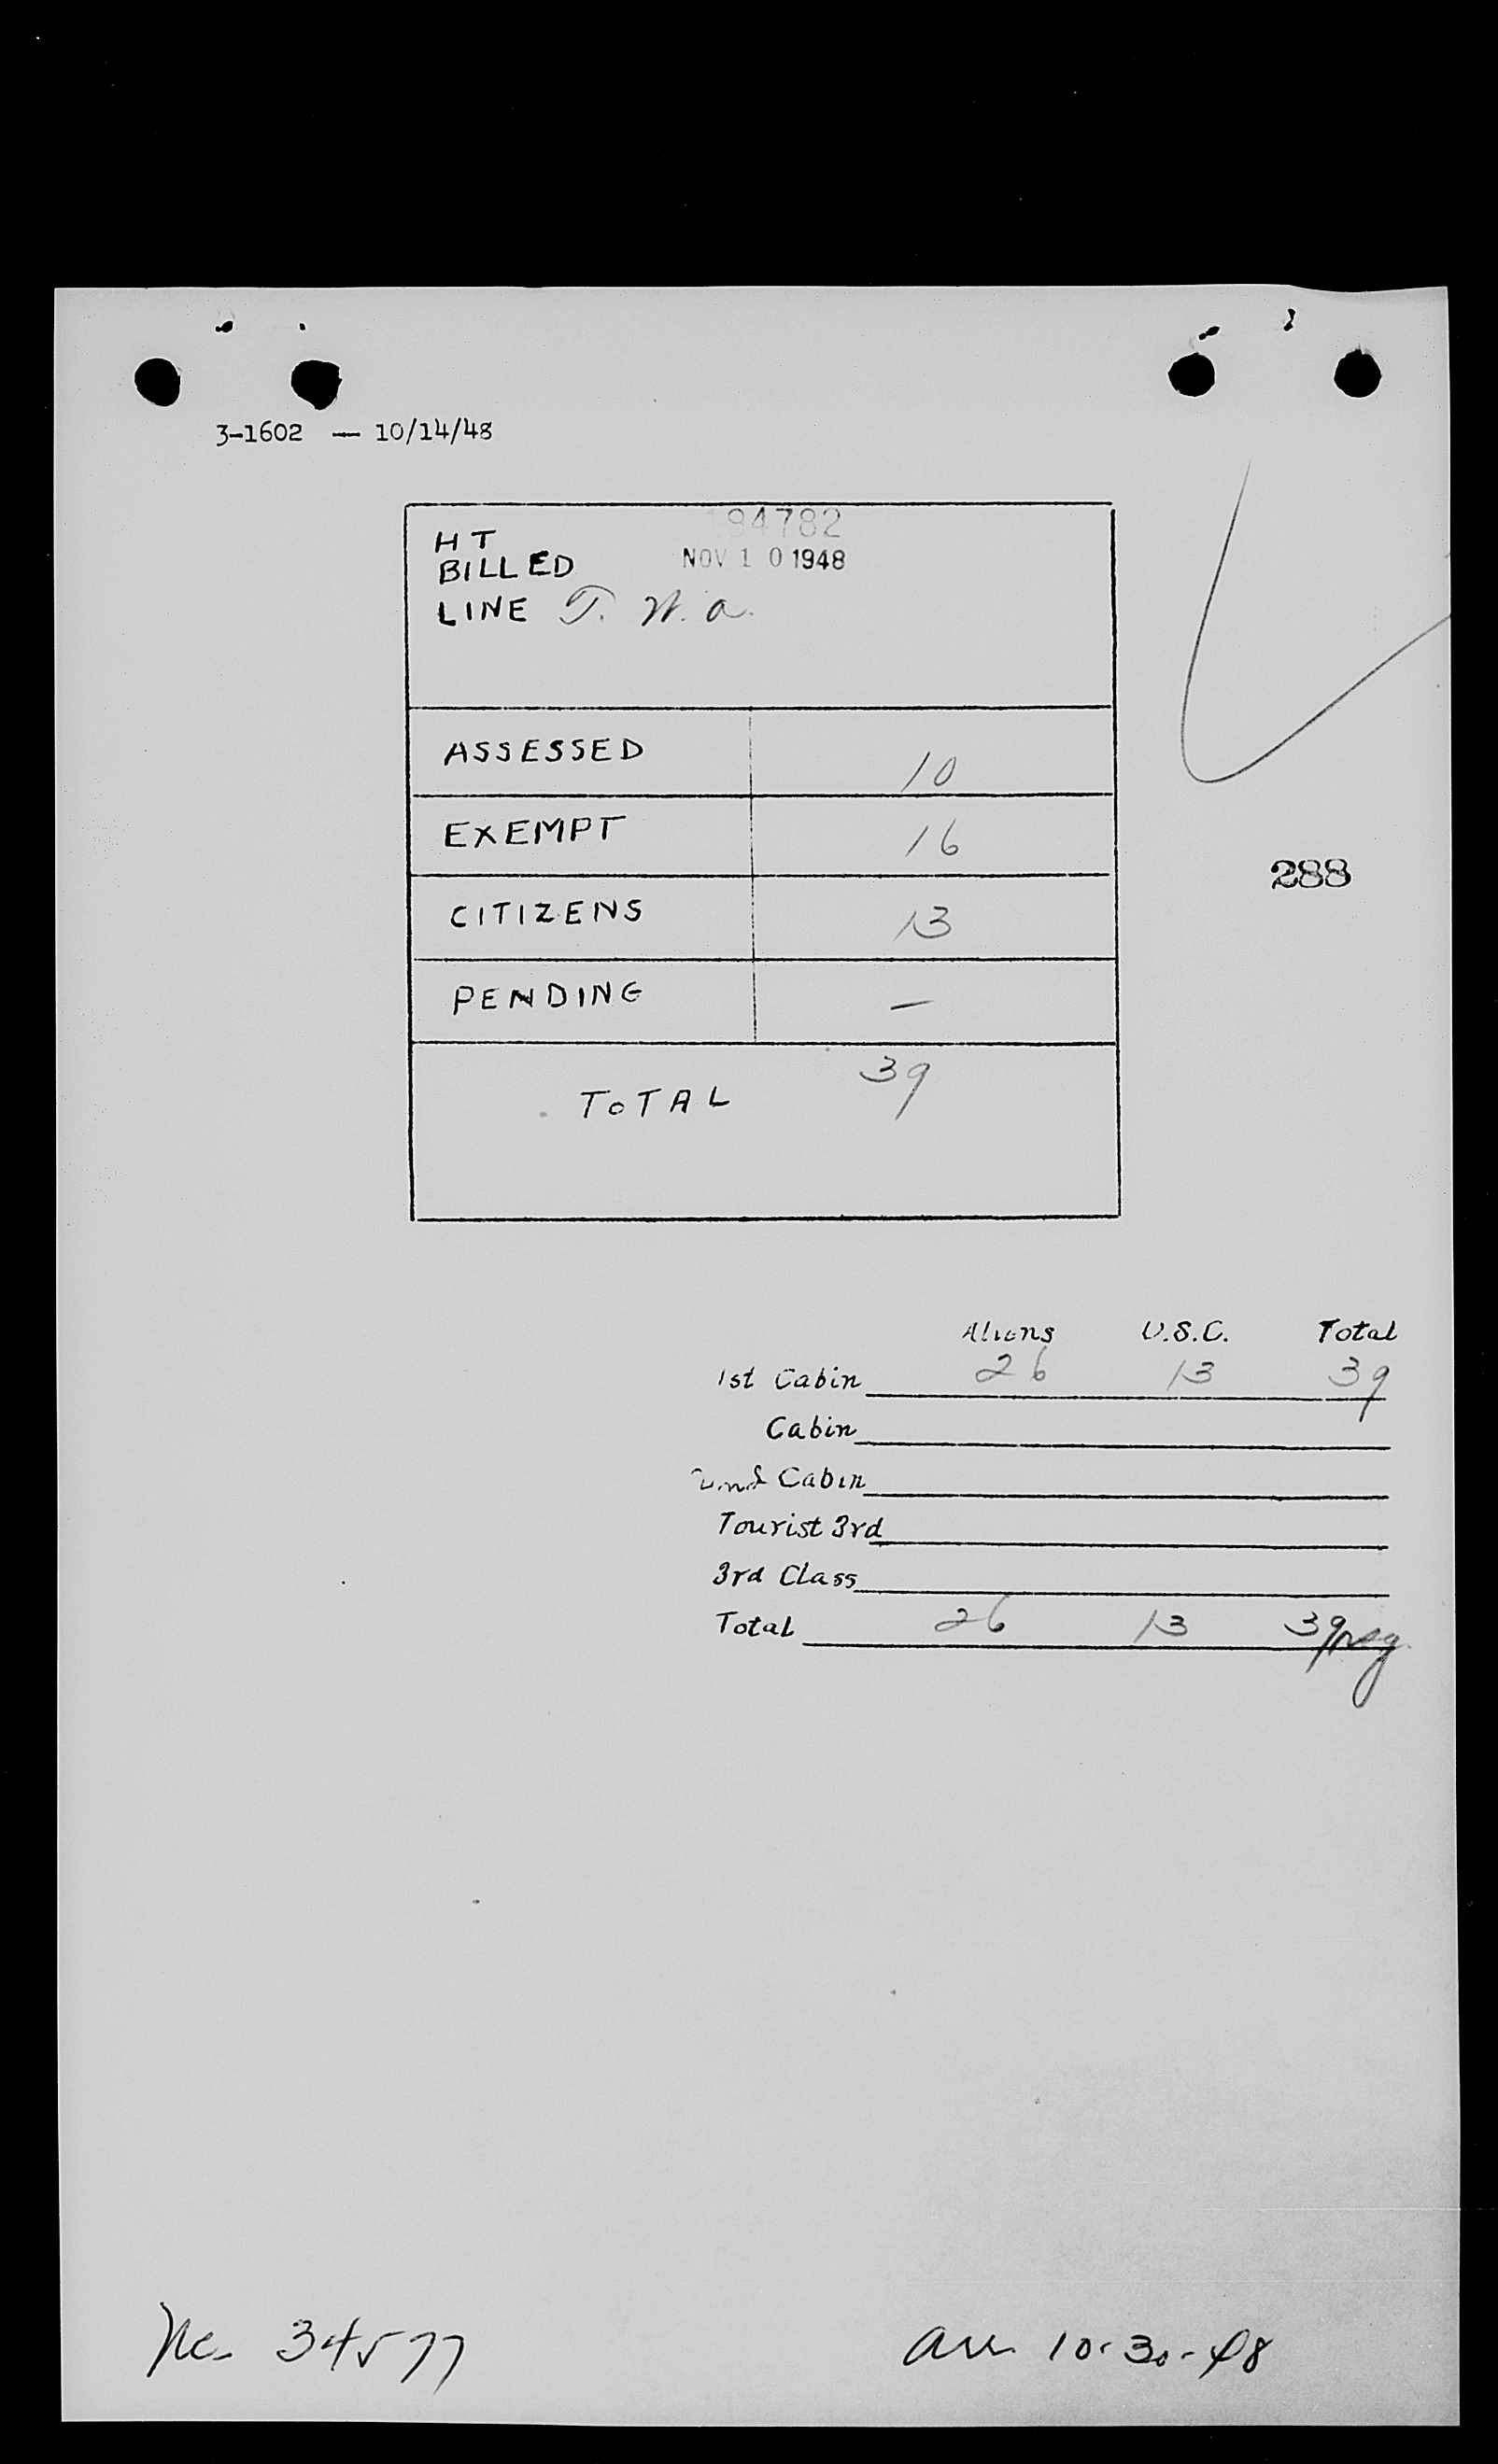 3-1602 — 10/14/48
94782
HT
BILLED NOV 10 1948
LINE T. W. a.
ASSESSED 10
EXEMPT 16
288
CITIZENS 13
PENDING —
TOTAL 39
Aliens U.S.C. Total
1st Cabin 26 13 39
Cabin
2nd Cabin
Tourist 3rd
3rd Class
Total 26 13 39
34577 arr 10-30-48